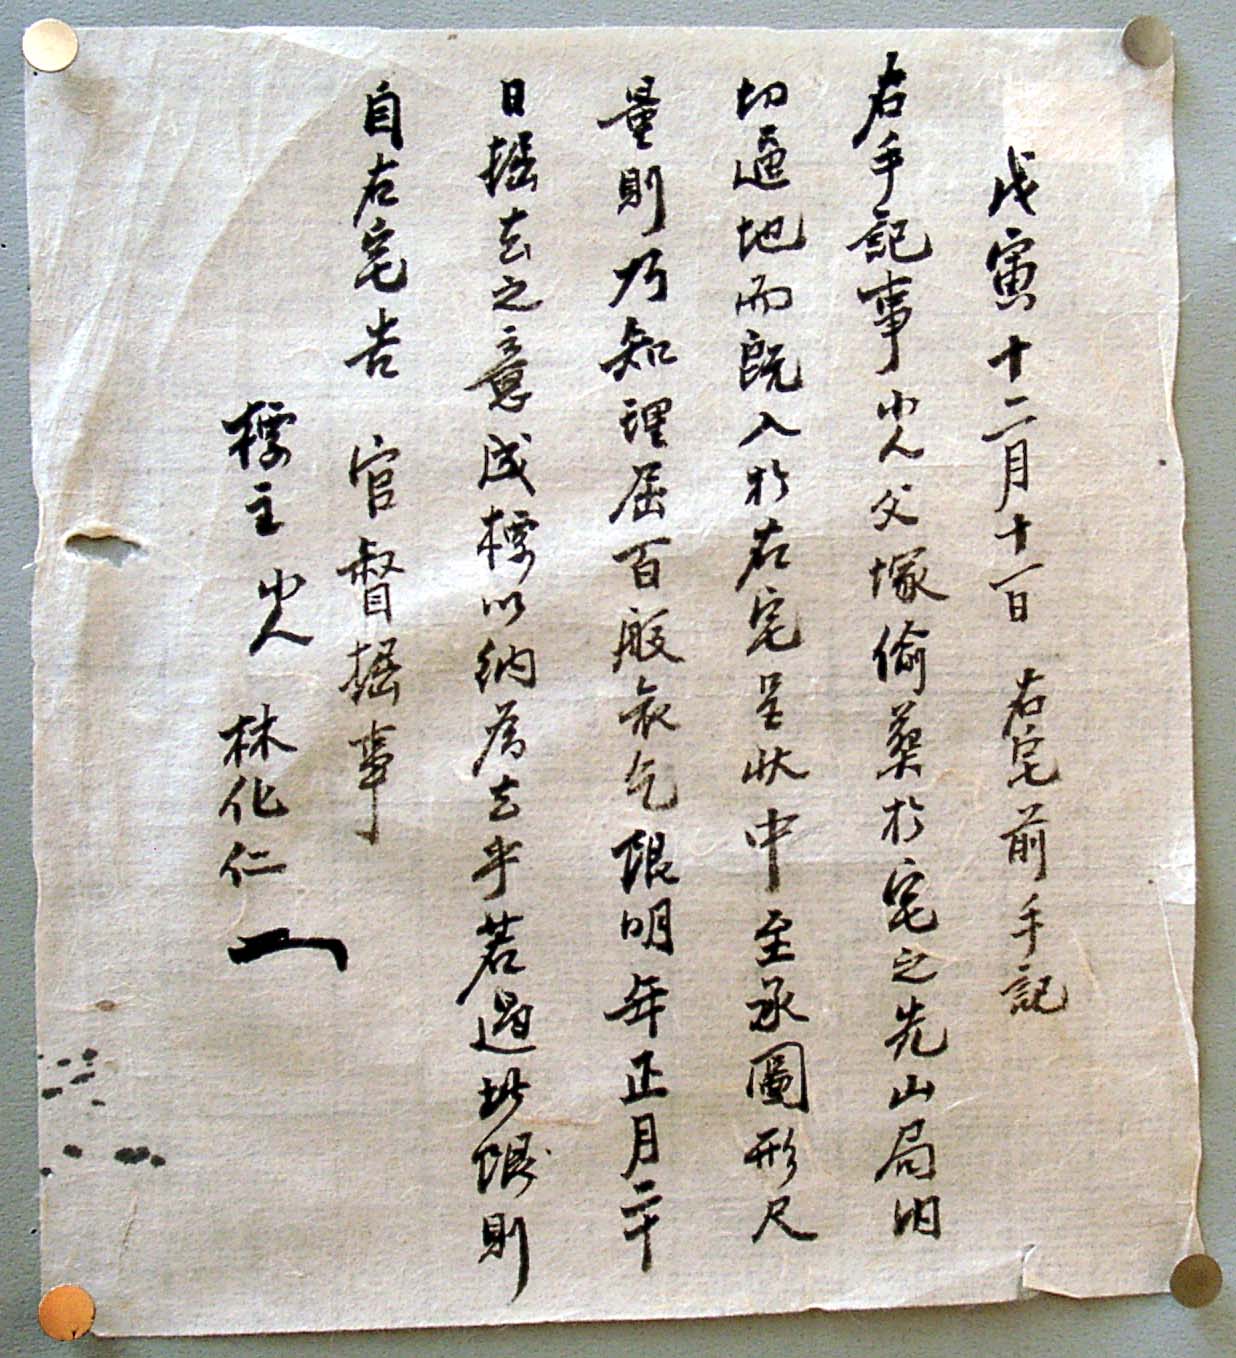 戊寅十二月十一日 右宅前手記
右手記事小人父塚偸葬於宅之先山局內
切逼地而旣入於右宅呈狀中至承圖形尺
量則乃知理屈百般哀乞限明年正月二十
日掘去之意成標以納爲去乎若過此限則
自右宅告 官督掘事
標主 小人 林化仁